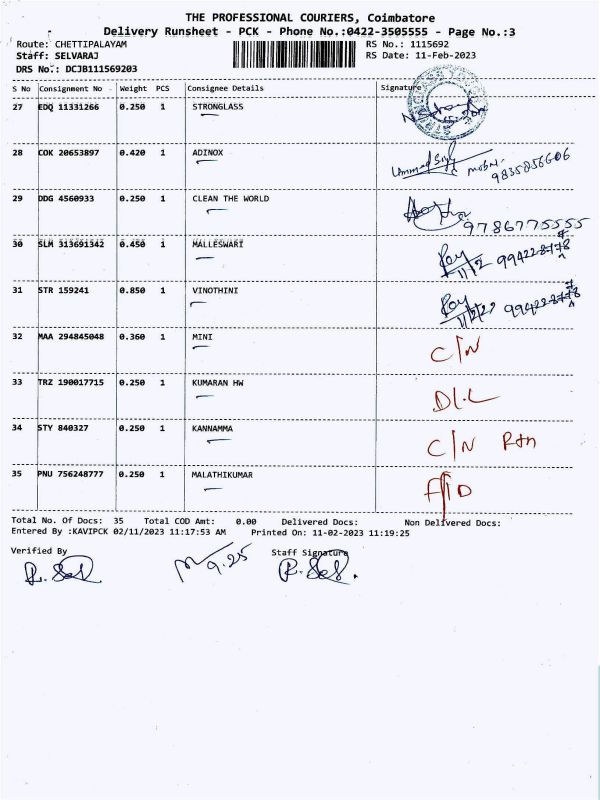 THE PROFESSIONAL COURIERS, Coimbatore
Delivery Runsheet - PCK - Phone No.:0422-3505555 - Page No.:3
Route: CHETTIPALAYAM RS No.: 1115692
Staff: SELVARAJ RS Date: 11-Feb-2023
DRS No.: DCJB111569203
S No Consignment No Weight PCS Consignee Details Signature
27 EDQ 11331266 0.250 1 STRONGLASS
28 COK 20653897 0.420 1 ADINOX
9835856606
29 DDG 4560933 0.250 1 CLEAN THE WORLD
9786775555
30 SLM 313691342 0.450 1 MALLESWARI
11/2
31 STR 159241 0.850 1 VINOTHINI
32 MAA 294845048 0.360 1 MINI C/N
33 TRZ 190017715 0.250 1 KUMARAN HW D/L
34 STY 840327 0.250 1 KANNAMMA C/N Rtn
35 PNU 756248777 0.250 1 MALATHIKUMAR
Total No. Of Docs: 35 Total COD Amt: 0.00 Delivered Docs: Non Delivered Docs:
Entered By :KAVIPCK 02/11/2023 11:17:53 AM Printed On: 11-02-2023 11:19:25
Verified By Staff Signature
9.25